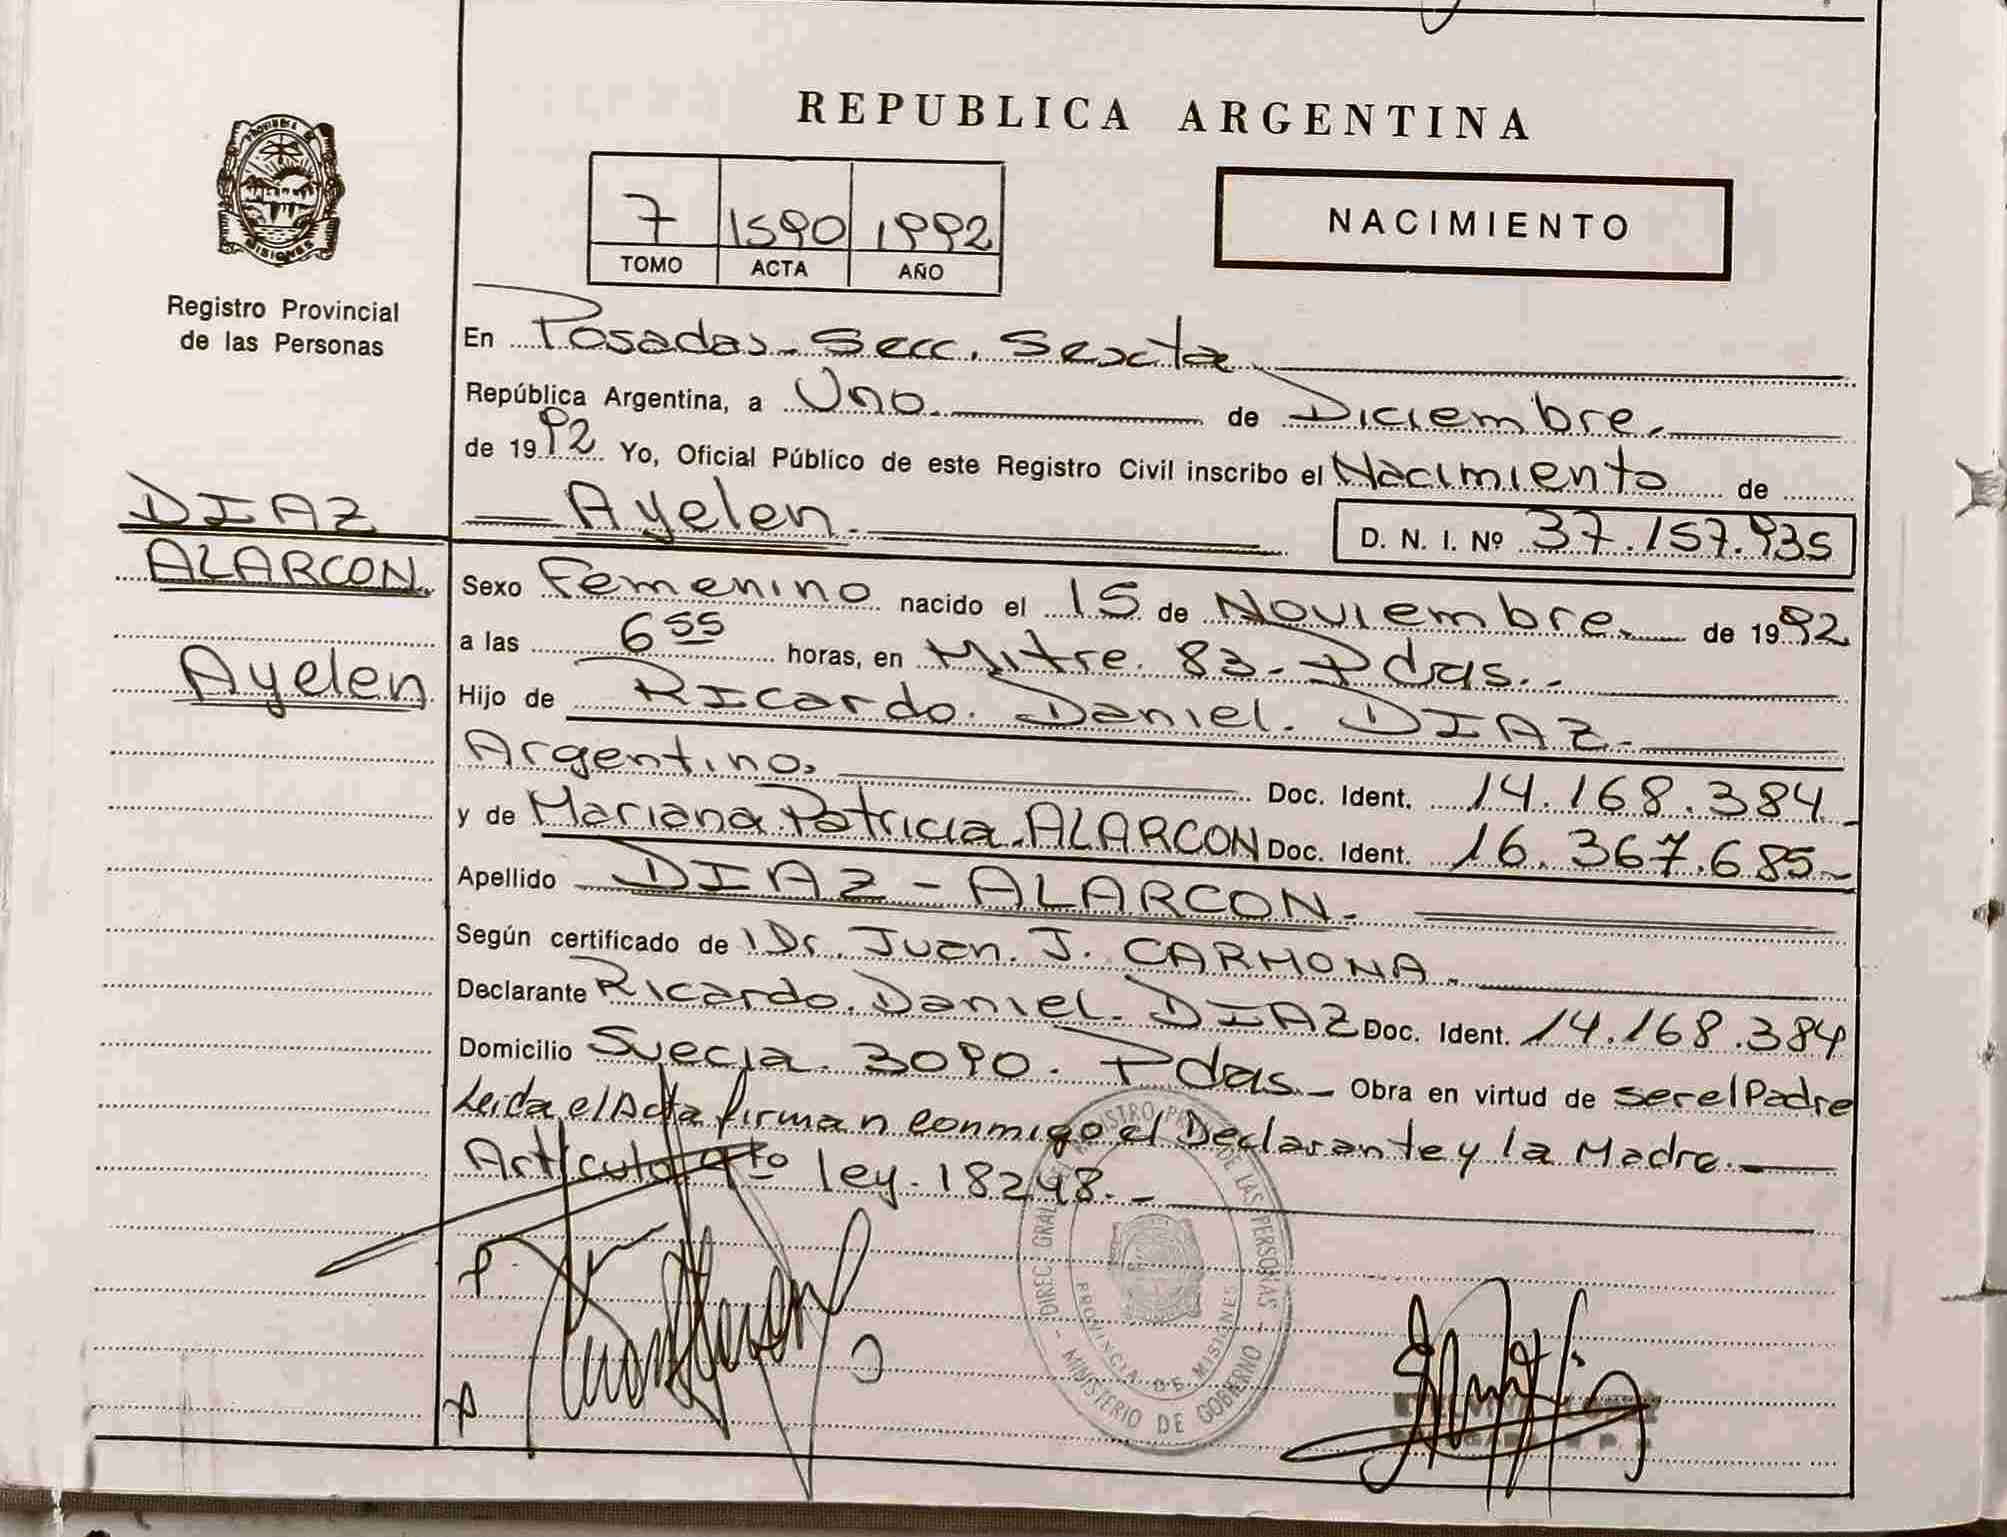 REPUBLICA ARGENTINA
PROVINCIA DE
MISIONES
Registro Provincial
de las Personas
7 1590 1992
TOMO ACTA AÑO
NACIMIENTO
En Posadas - Secc. Sexta
República Argentina, a Uno de Diciembre.
de 1992 Yo, Oficial Público de este Registro Civil inscribo el Nacimiento de
Ayelen. D. N. I. Nº 37.157.935
DIAZ
ALARCON
Ayelen
Sexo Femenino nacido el 15 de Noviembre. de 1992
a las 6 55 horas, en Mitre. 83 - Pdas. -
Hijo de Ricardo. Daniel. DIAZ -
Argentino. Doc. Ident. 14.168.384
y de Mariana Patricia ALARCON Doc. Ident. 16.367.685
Apellido DIAZ - ALARCON.
Según certificado de Dr. Juan. J. CARMONA.
Declarante Ricardo. Daniel. DIAZ Doc. Ident. 14.168.384
Domicilio Suecia. 3090. Pdas. Obra en virtud de ser el Padre
Leida el Acta firman conmigo el Declarante y la Madre.
Articulo 4to ley. 18248. -
DIREC. GRAL. REGISTRO PROV. DE LAS PERSONAS
MINISTERIO DE GOBIERNO
PROVINCIA DE MISIONES